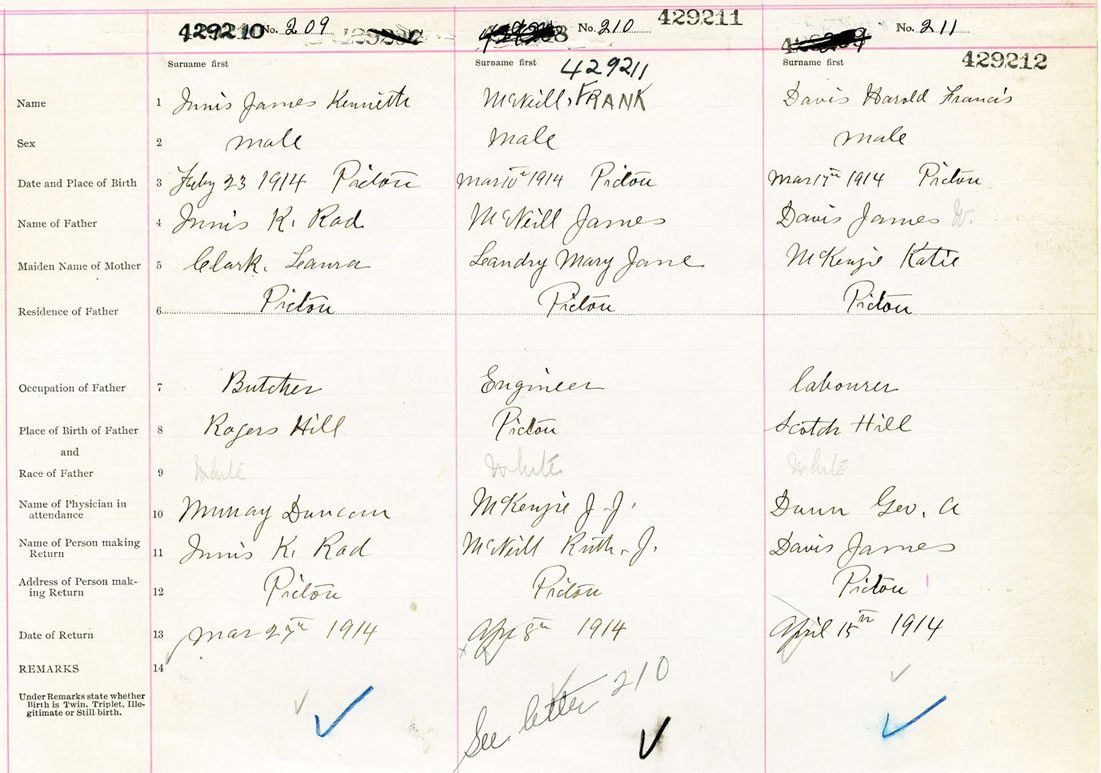 429210 No. 209 No. 210 429211 No. 211
Surname first Surname first 429211 Surname first 429212
Name 1 Innis James Kenneth McNeill, FRANK Davis Harold Francis
Sex 2 male Male male
Date and Place of Birth 3 Feby 23 1914 Pictou Mar 10th 1914 Pictou Mar 17th 1914 Pictou
Name of Father 4 Innis K. Rod McNeill James Davis James W.
Maiden Name of Mother 5 Clark, Leaura Leandry Mary Jane McKenzie Katie
Residence of Father 6 Pictou Pictou Pictou
Occupation of Father 7 Butcher Engineer labourer
Place of Birth of Father 8 Rogers Hill Pictou Scotch Hill
and
Race of Father 9 White White White
Name of Physician in
attendance 10 Murray Duncan McKenzie J. J. Dunn Geo. A
Name of Person making
Return 11 Innis K. Rod McNeill Ruth. J. Davis James
Address of Person mak-
ing Return 12 Pictou Pictou Pictou
Date of Return 13 Mar 27th 1914 Apr 8th 1914 April 15th 1914
REMARKS 14
Under Remarks state whether
Birth is Twin, Triplet, Ille-
gitimate or Still birth.
See letter 210